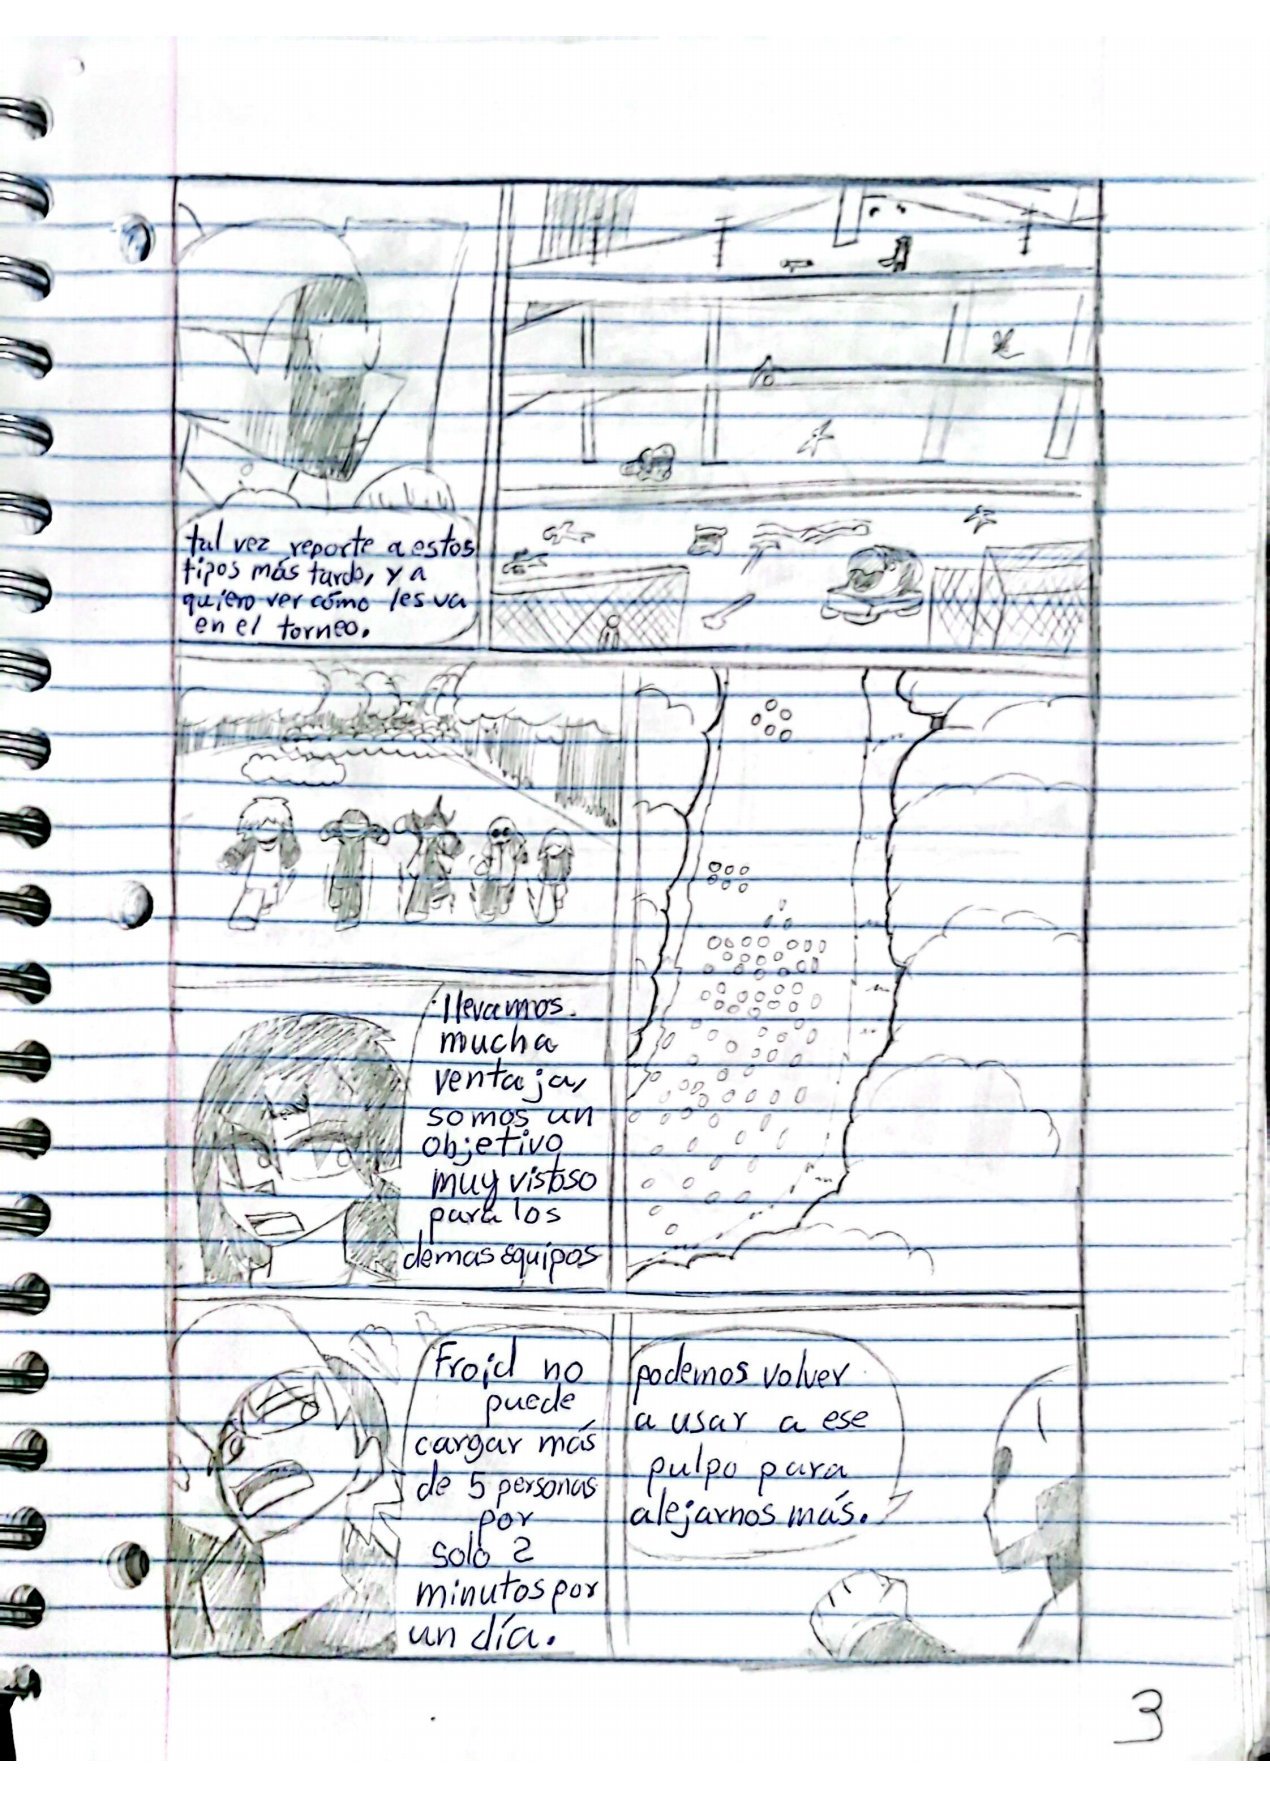 tal vez reporte a estos
tipos más tarde, y a
quiero ver cómo les va
en el torneo.
llevamos
mucha
ventaja,
somos un
objetivo
muy vistoso
para los
demas equipos
Froid no
puede
cargar más
de 5 personas
por
solo 2
minutos por
un día.
podemos volver
a usar a ese
pulpo para
alejarnos más.
3